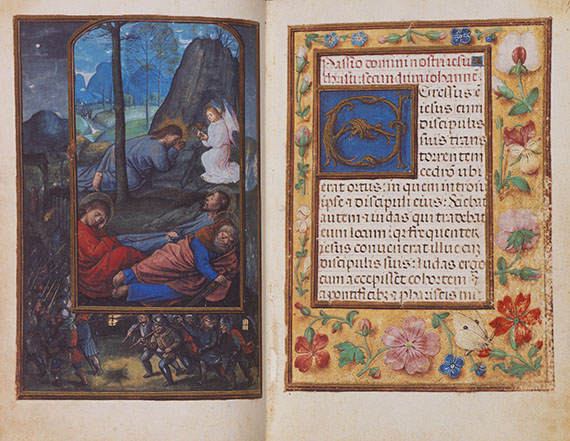 Passio domini nostri iesu
christi: secundum iohanne
EGressus ē
iesus cum
discipulis
suis trans
torrentem
cedron ubi
erat ortus: in quem introiu
ipse et discipuli eius: Sciebat
autem iudas qui tradebat
eum locum: q frequenter
iesus convenerat illuc cum
discipulis suis: Iudas ergo
cum accepisset cohortem
a pontificibus et phariseis mi